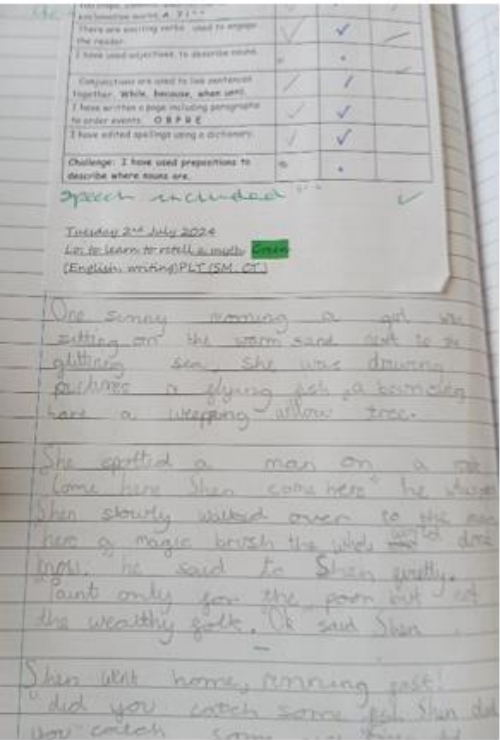 There are exciting verbs used to engage
the reader.
I have used adjectives to describe nouns.
Conjunctions are used to link sentences
together. While, because, when until.
I have written a page including paragraphs
to order events. O B P R E
I have edited spellings using a dictionary.
Challenge: I have used prepositions to
describe where nouns are.
Speech included
Tuesday 2nd July 2024
Lo: to learn to retell a myth. Green
(English, writing) PLT (SM, CT)
One sunny morning a girl was
sitting on the warm sand next to the
glittring sea, she was drawing
puchures a flying fish, a bouncing
hare a weepping willow tree.
She spotted a man on a
Come here Shen come here" he
Shen slowly walked over to the man
here a magic brush the world
he said to Shen
Paint only for the poor but not
the wealthy folk. Ok said Shen
Shen went home, running fast!
"did you catch some fish Shen did
you catch some